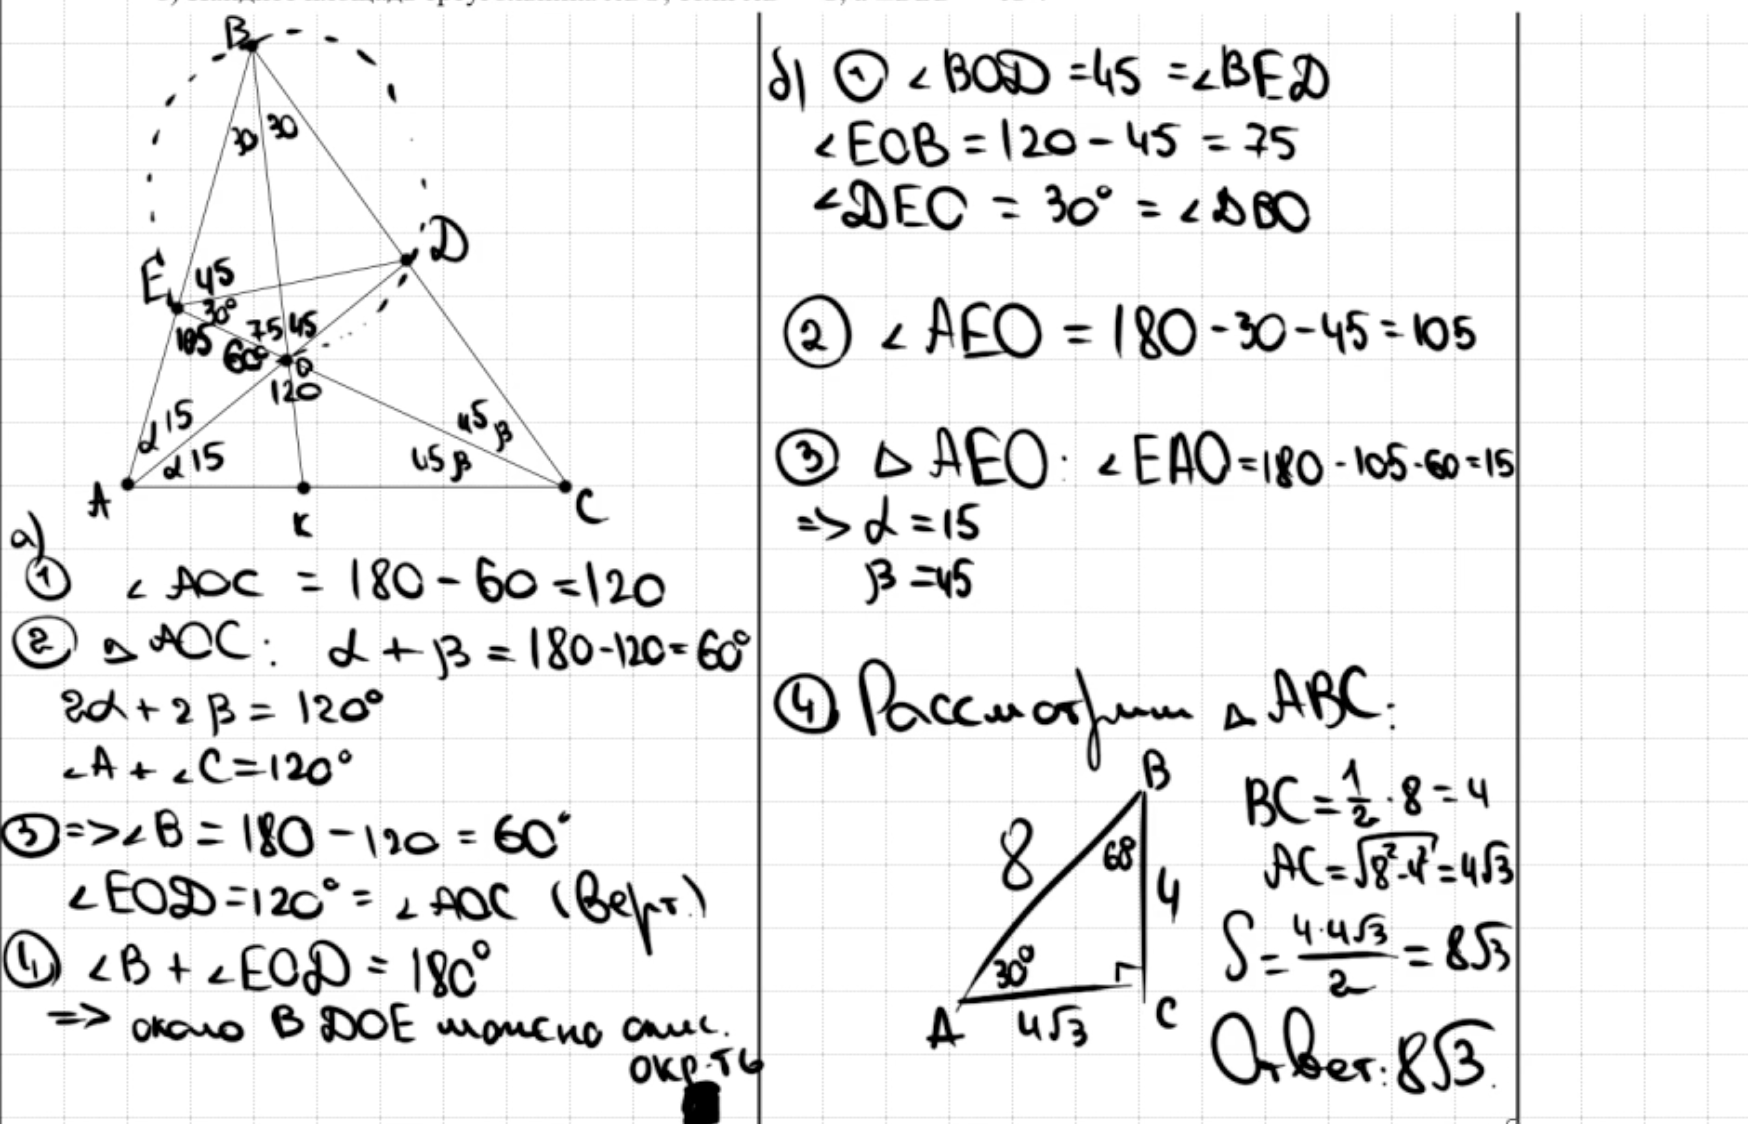 B
30 30
D
E 45
30°
105 60° 75 45
O
120
α 15
α 15
45 β
45 β
A K C
а)
① ∠AOC = 180 - 60 = 120
② △AOC: α + β = 180-120 = 60°
2α + 2β = 120°
∠A + ∠C = 120°
③ => ∠B = 180 - 120 = 60°
∠EOD = 120° = ∠AOC (Верт.)
④ ∠B + ∠EOD = 180°
=> около BDOE можно опис.
окр-ть
б) ① ∠BOD = 45 = ∠BED
∠EOB = 120 - 45 = 75
∠DEO = 30° = ∠DBO
② ∠AEO = 180 - 30 - 45 = 105
③ △AEO: ∠EAO = 180 - 105 - 60 = 15
=> α = 15
β = 45
④ Рассмотрим △ABC:
B
8
4
30°
A 4√3 C
BC = 1/2 · 8 = 4
AC = √8²-4² = 4√3
S = 4·4√3/2 = 8√3
Ответ: 8√3.